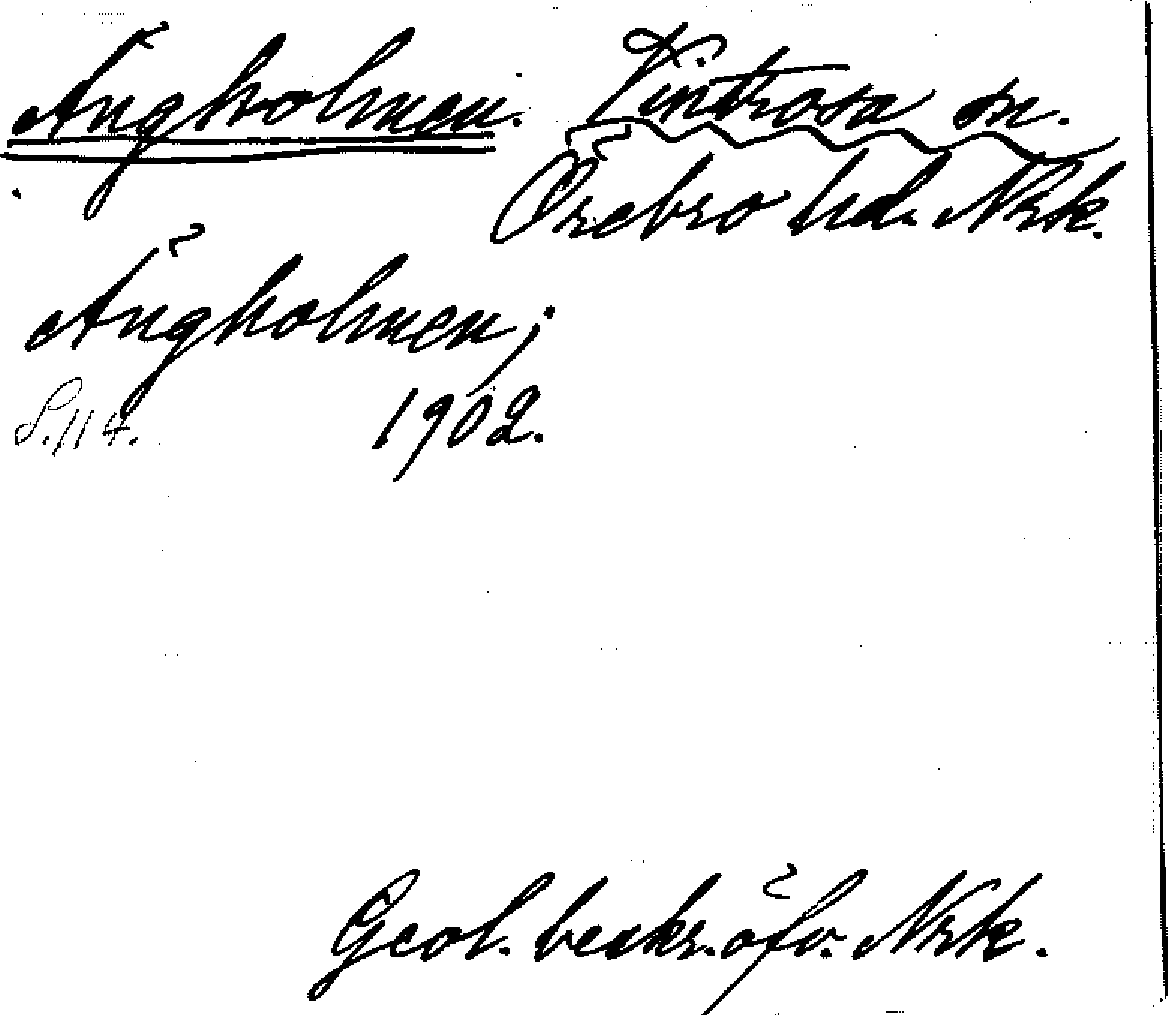 Ängholmen. Vintrosa sn.
Örebro hd. Nrk.
Ängholmen;
S. 114. 1902.
Geol. beskr. öfv. Nrk.